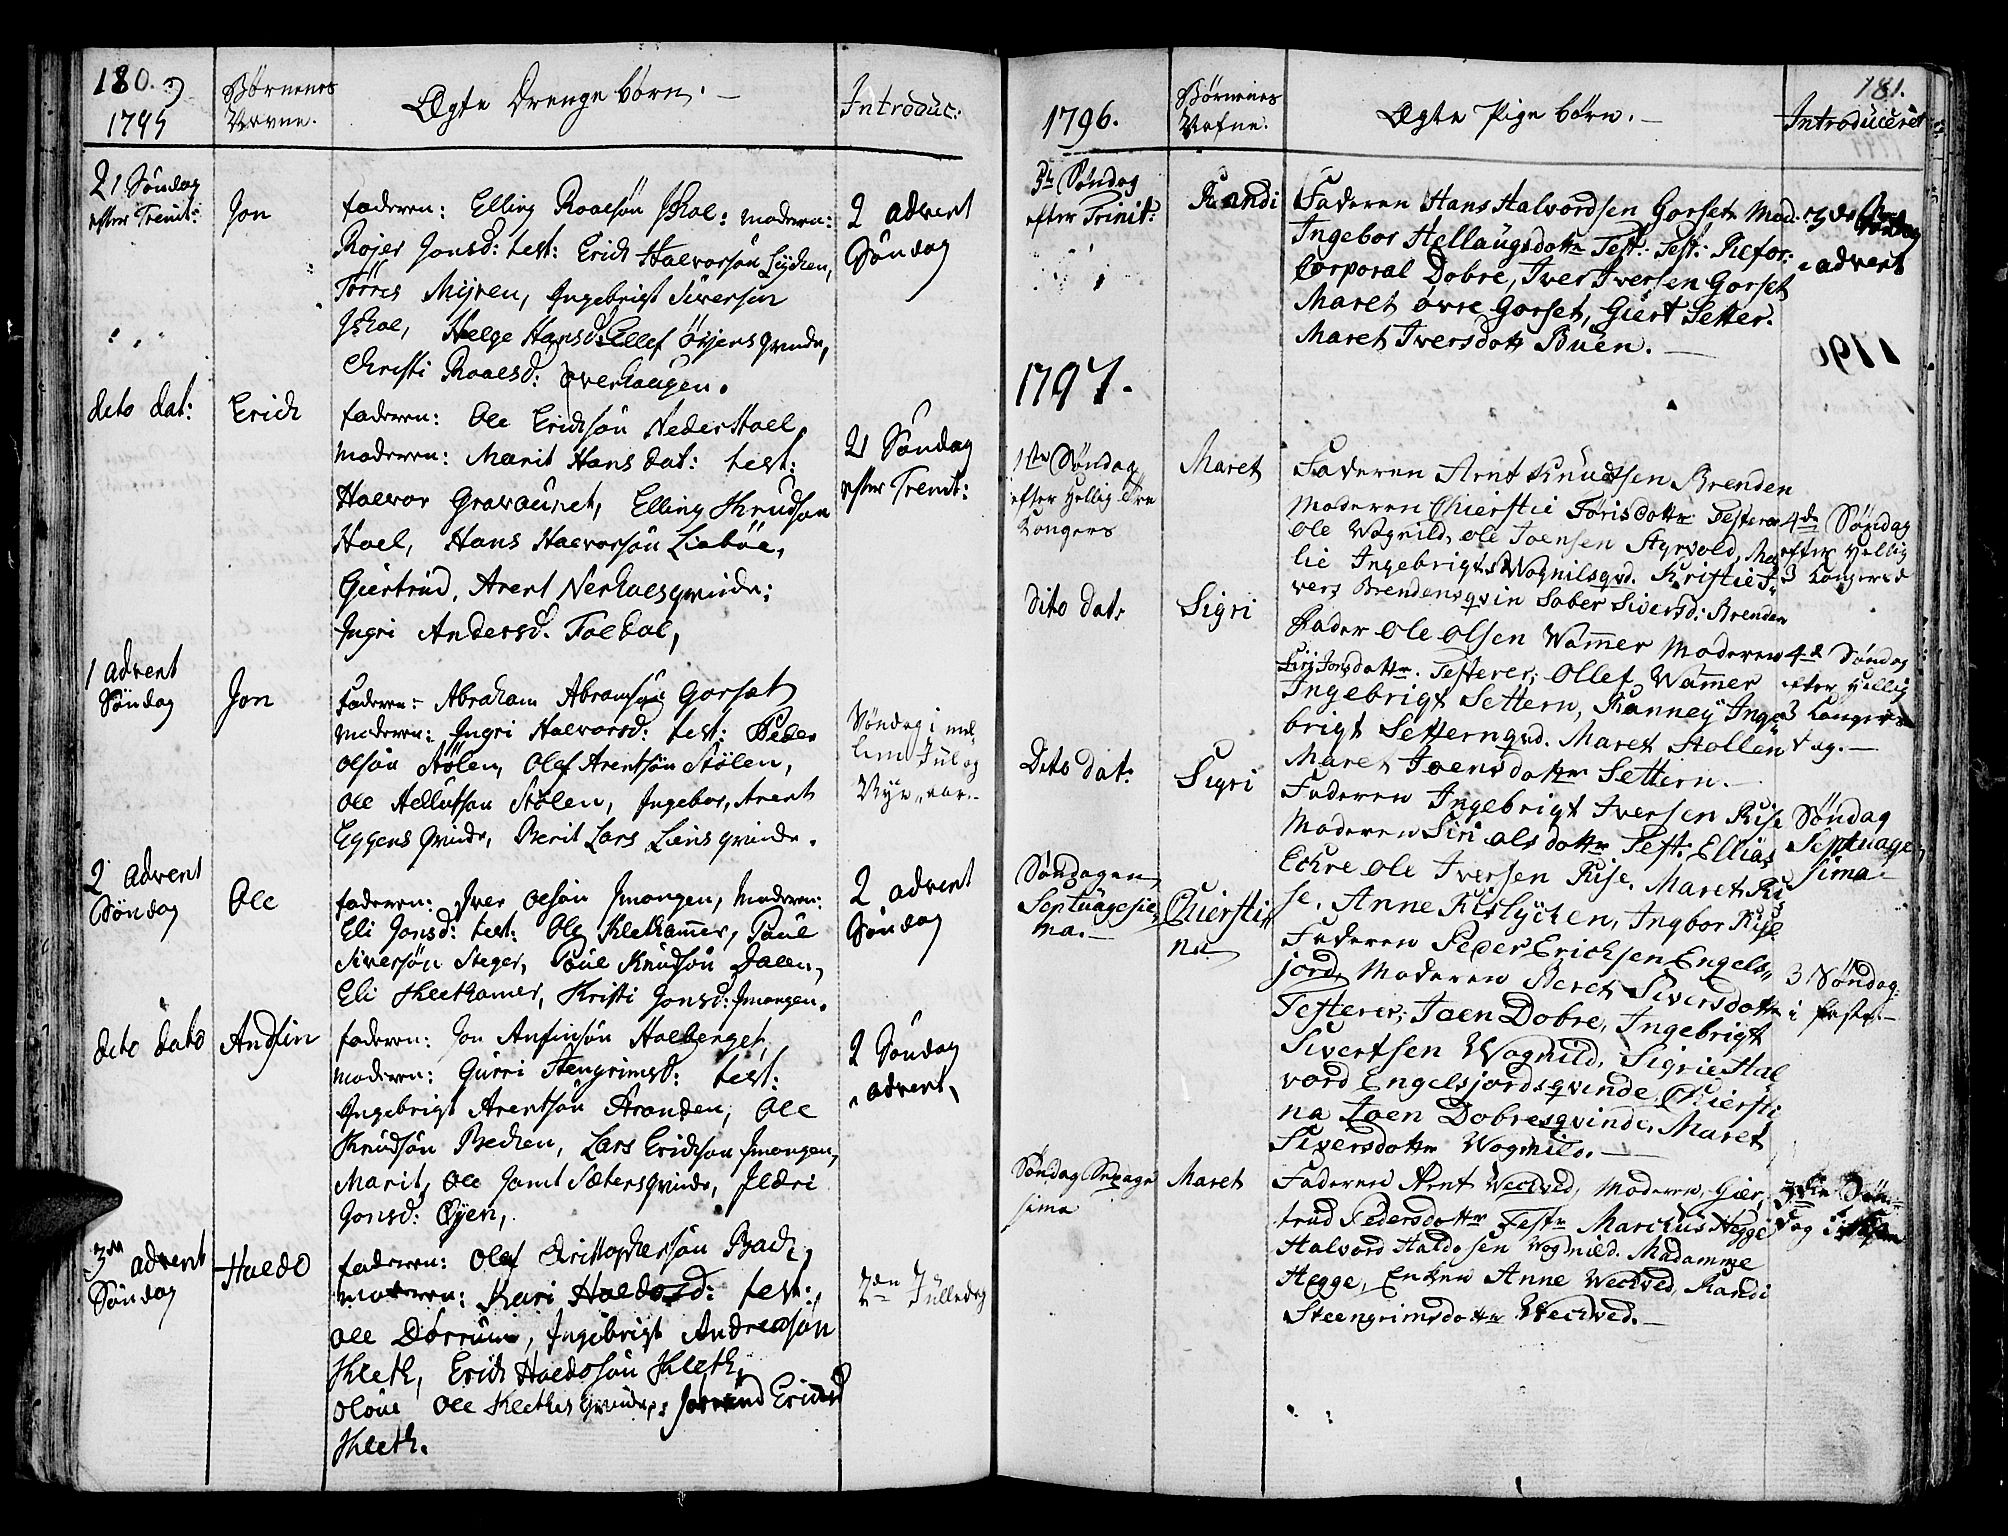 180.
1795
Børnenes
Navne.
Ægte Drenge børn. —
Introduc:
21 Søndag
efter Trenit:
Jon
faderen: Elling Roaelsøn Skoe: moderen:
Rojer Jonsd: test: Erich Haevorsøn Lycken,
Tørres Myren, Ingebrigt Siversøn
Helge Hansd: Ellef Øyens qvinde,
Christi Roaelsd: overhaugen.
2 advent
Søndag
deto dat:
Erich
faderen: Ole Erichsøn Nederhoel
moderen: Marit Hans dat: test:
Haevor Gravaunet, Elling Knudsøn
Hoel, Hans Haevorsøn Lieböe,
Giertrud, Arent Nerhoels qvinde;
Ingri Andersd. Foeboe,
21 Søndag
efter Trenit:
1 advent
Søndag
Jon
faderen: Abraham Abramsøn Gorset
moderen: Ingri Haevorsd: test: Peder
Olsøn Stølen, Olef Arentsøn Stølen,
Ole Hellutsøn Stølen, Ingebor, Arent
Eggens qvinde, Berit Lars Liens qvinde.
Søndag i mel-
lem Jul og
Nyt aar
2 advent
Søndag
Ole
faderen: Iver Olsøn Jmongen, moderen:
Eli Jonsd: test: Ole Kletkamer, Poul
Siversøn Steger, Poul Knudsøn Dalen,
Eli Kleetkamer, Kristi Jonsd: Jmongen.
2 advent
Søndag
deto dato
Andfin
faderen: Jon Anfinsøn Hoelberget,
moderen: Gurri Stengrimsd: test:
Ingebrigt Arentsøn Stranden, Ole
Knudsøn Bechen, Lars Erichsøn Jmongen,
Marit, Ole Jamt Sæters qvinde, Ildri
Jonsd: Øyen,
2 Søndag
advent,
3de advent
Søndag
Haldo
faderen: Olef Christophersøn Bach,
moderen: Kari Haldosd: test:,
Ole Dørrum, Ingebrigt Andreasøn
Kleth, Erich Haldosøn Kleth,
Oloue Ole Klethes qvinde, Erichsd
Kleth.
2den Julledag
181.
1796.
Børnenes
Nafne.
Ægte Pige børn. —
Introduceret
efter Trinit:
Randi
Faderen Hans Halvordsen Gorset Mod:
Ingebor Hellaugsdottr Test: Refor:
Corporal Dobre, Iver Iversen Gorset
Maret øvre Gorset, Giert Setter.
Maret Iversdottr Buen. —
3de
advent
1797.
1ste Søndag
efter Hellig tre
Kongers
Maret
Faderen Arnt Knudtsen Brenden
Moderen Chierstie Torisdottr Testerer
Ole Wognild, Ole Joensen Styrvold, Ma-
lie Ingebrigt Wognilsqvd. Kristie I-
vers Brendensqvin Sober Siversd: Brenden
4de Søndag
efter Hellig
3 Kongers d
Dito dat:
Sigri
Fader Ole Olsen Wammer Moderen
Siri Jonsdottr. Testerer; Ollef Wammer
Ingebrigt Settern, Ranney Inge
brigt Setternqvd. Maret Stollen
Maret Joensdottr Settern. —
4de Søndag
efter Hellig
3 Kongers
dag. —
Dito dat:
Sigri
Faderen Ingebrigt Iversen Rise
Moderen Siri Olsdottr Test: Ellias
Echre Ole Iversen Rise, Maret Ri
se, Anne Rislycken, Ingbor Rise
Søndag
Septuage
sima —
Søndagen
Septuagesi
ma. —
Chiersti
na
Faderen Peder Erichsen Engels-
jord, Moderen Beret Siversdottr
Testerer; Joen Dobre, Ingebrigt
Sivertsen Wognild, Sigrie Hal
vord Engelsjordsqvinde, Chiersti
na Joen Dobresqvinde, Maret
Siversdottr Wognild. —
3 Søndag
i faste. —
Søndag
sima
Maret
Faderen Arnt Weclved, Moderen, Gier
trud Pedersdottr Test: Marchus Hegge
Halvord Haldosen Wognild. Madamme
Hegge, Enken Anne Weclved, Randi
Steengrimsdottr Weclved. —